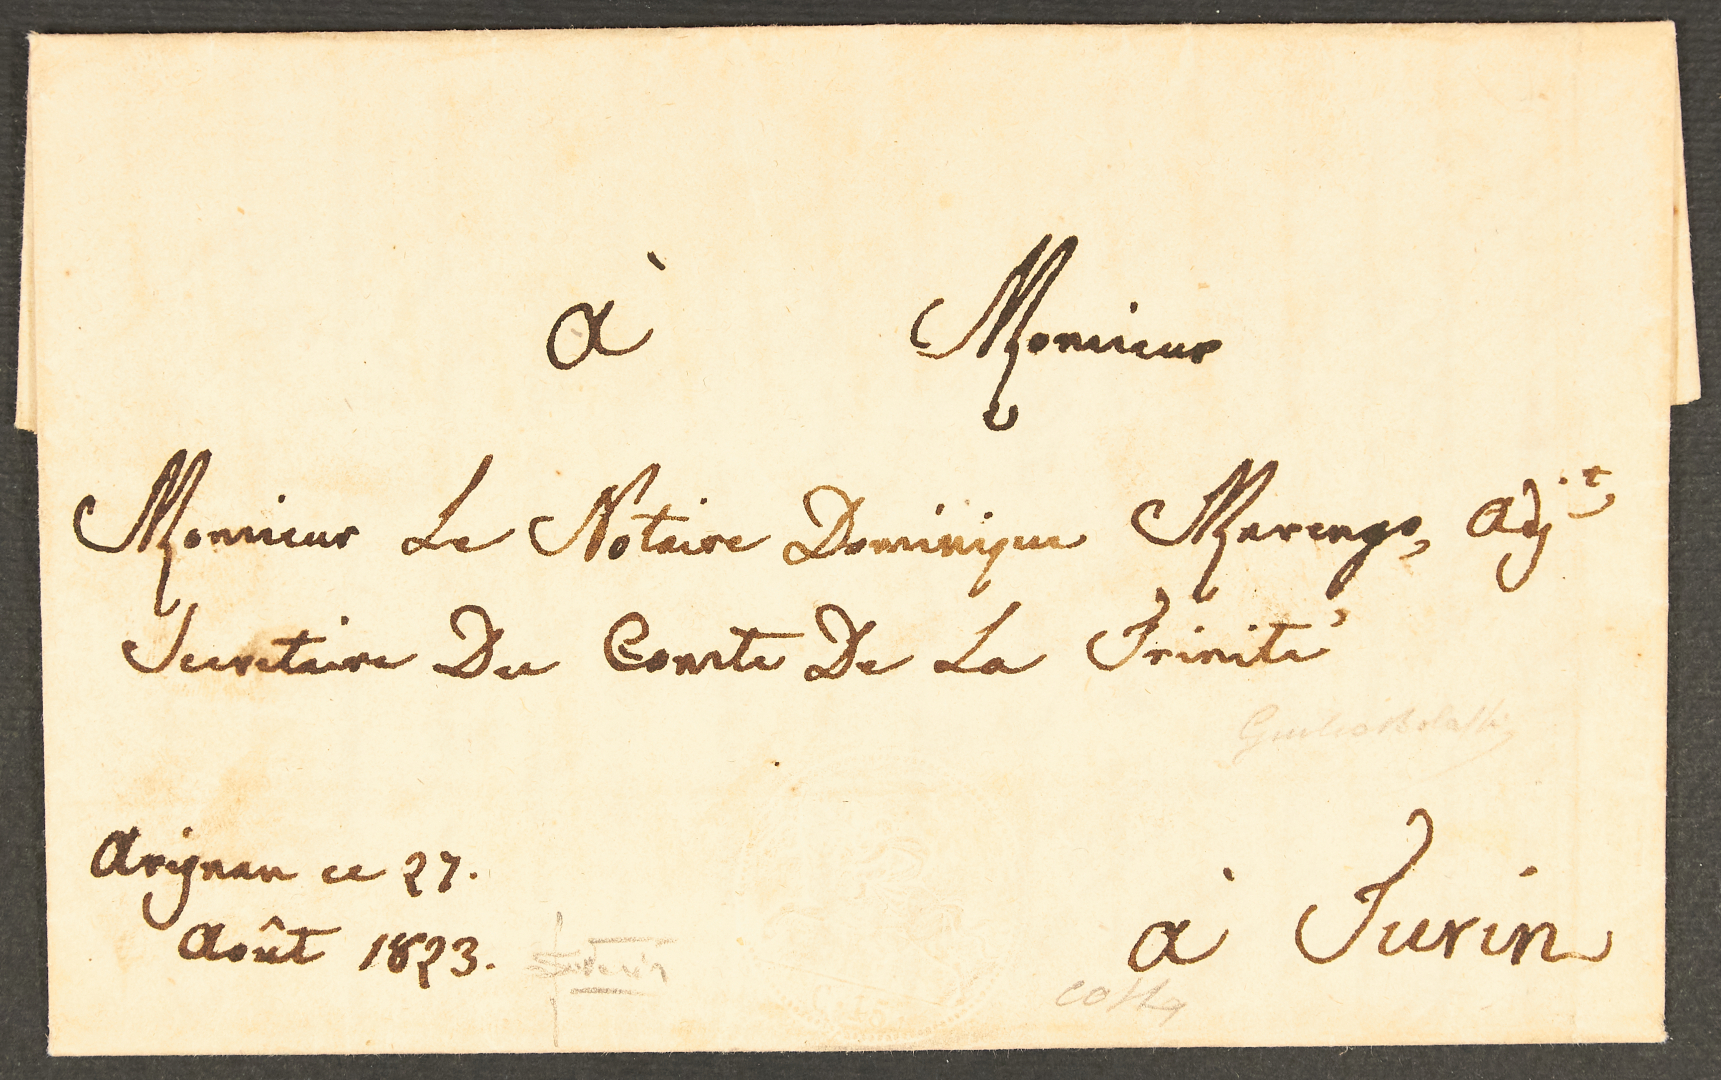 à Monsieur
Monsieur Le Notaire Dominique Marengo, Adj.t
Secretaire Du Comte De La Trinité
Giulio Bolaffi
Arignan ce 27.
Août 1823.
à Turin